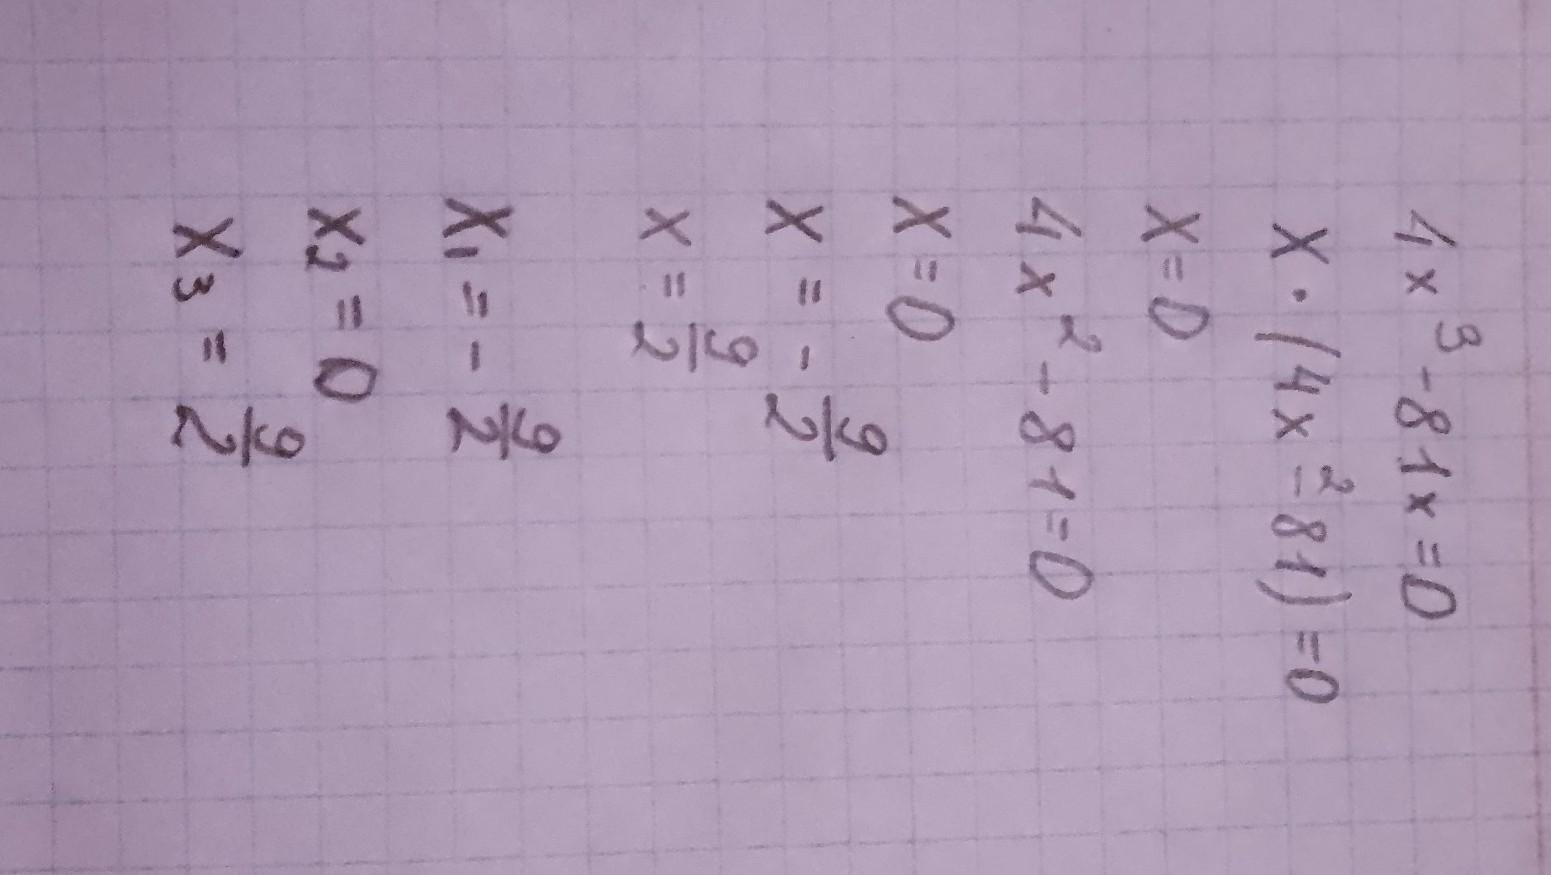 4x³-81x=0
x·(4x²-81)=0
x=0
4x²-81=0
x=0
x=-9/2
x=9/2
x₁=-9/2
x₂=0
x₃=9/2